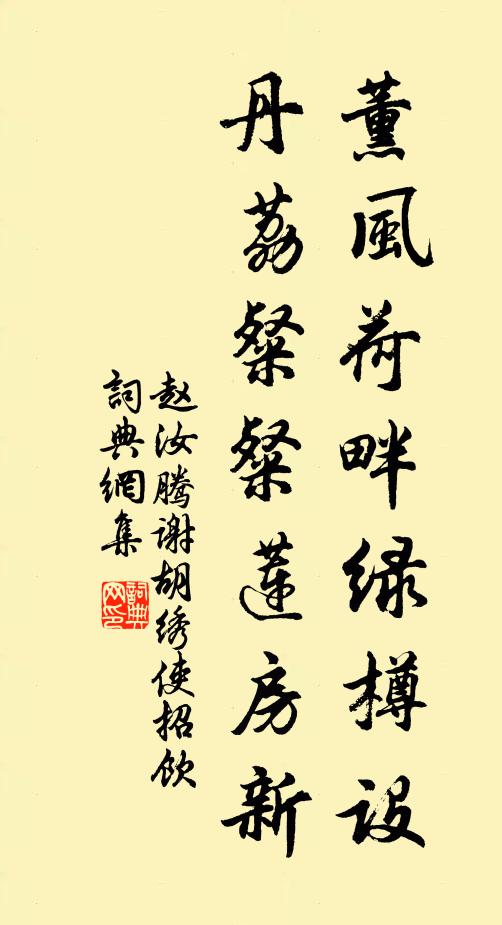 薰風荷畔绿樽設
丹荔粲粲蓮房新
赵汝腾谢胡绣使招饮
詞典網集
詞典网印